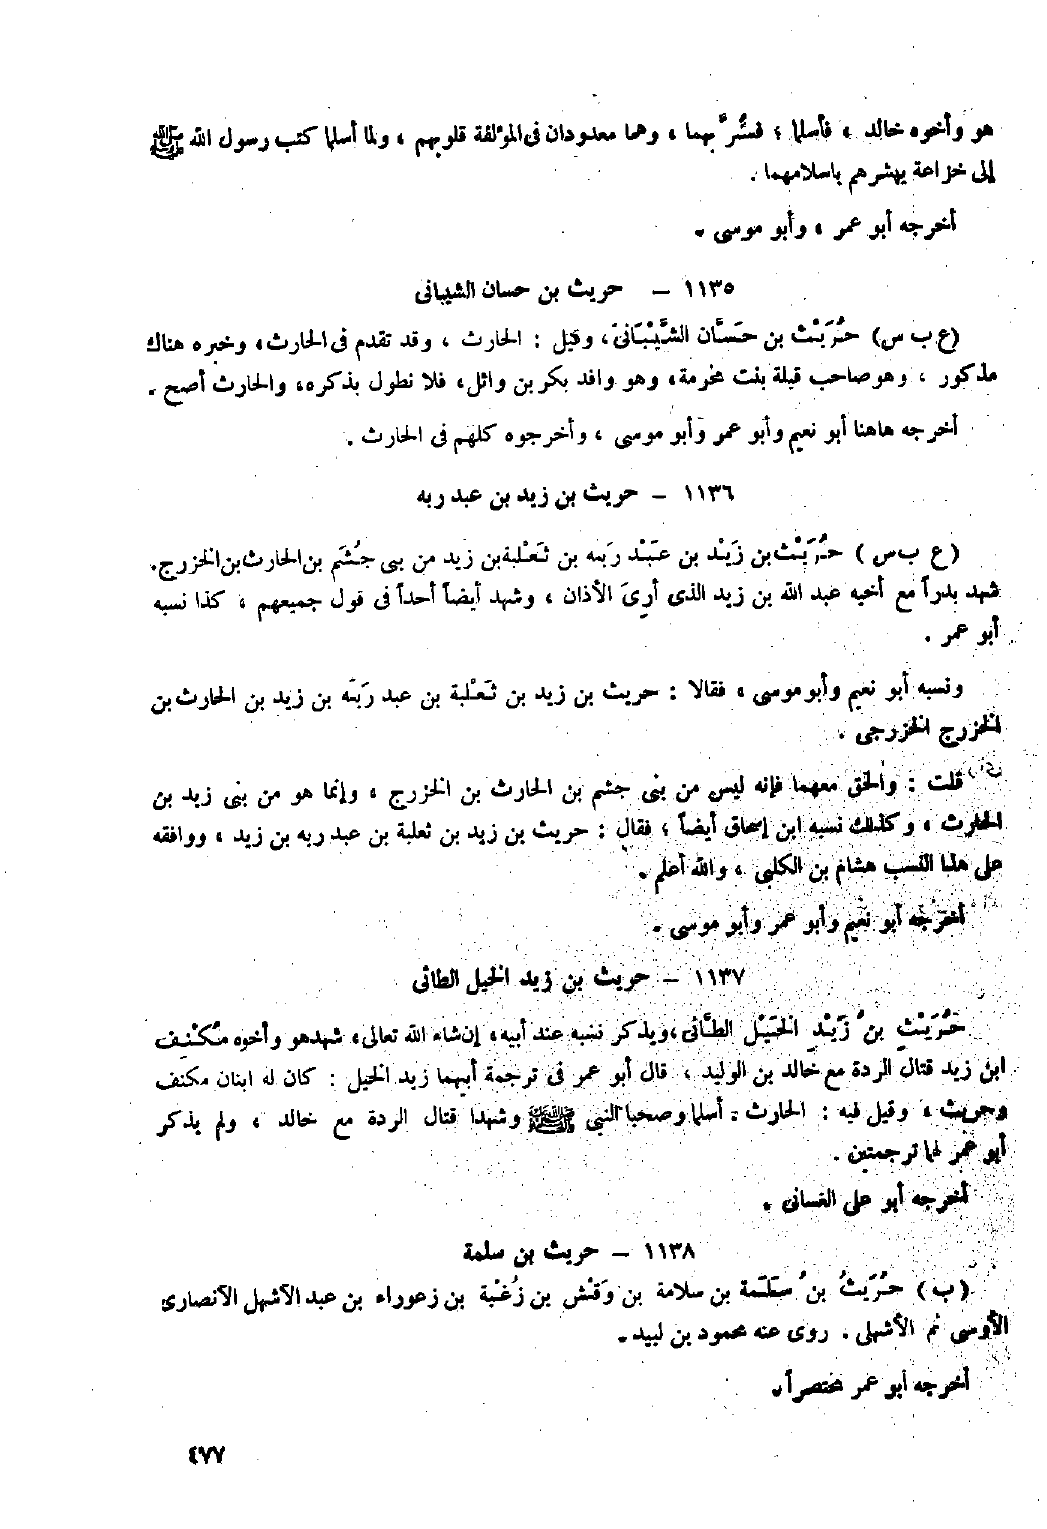 هو وأخوه خالد ، فأسلما ؛ فسُرَّ بهما ، وهما معدودان فى المؤلفة قلوبهم ، ولما أسلما كتب رسول الله ﷺ
إلى خزاعة يبشرهم باسلامهما .
أخرجه أبو عمر ، وأبو موسى .
١١٣٥ – حريث بن حسان الشيبانى
(ع ب س) حُرَيْث بن حَسَّان الشَّيْبَانىّ، وقيل : الحارث ، وقد تقدم فى الحارث، وخبره هناك
مذكور ، وهو صاحب قيلة بنت مخرمة، وهو وافد بكر بن وائل، فلا نطول بذكره، والحارث أصح .
أخرجه هاهنا أبو نعيم وأبو عمر وأبو موسى ، وأخرجوه كلهم فى الحارث .
١١٣٦ – حريث بن زيد بن عبد ربه
(ع ب س) حُرَيْث بن زَيْد بن عَبْد رَبّه بن ثَعْلبة بن زيد من بنى جُشَم بن الحارث بن الخزرج.
شهد بدراً مع أخيه عبد الله بن زيد الذى أُرِىَ الأذان ، وشهد أيضاً أحداً فى قول جميعهم ، كذا نسبه
أبو عمر .
ونسبه أبو نعيم وأبو موسى ، فقالا : حريث بن زيد بن ثَعْلبة بن عبد رَبّه بن زيد بن الحارث بن
الخزرج الخزرجى .
قلت : والحق معهما فإنه ليس من بنى جشم بن الحارث بن الخزرج ، وإنما هو من بنى زيد بن
الحارث ، وكذلك نسبه ابن إسحاق أيضاً ؛ فقال : حريث بن زيد بن ثعلبة بن عبد ربه بن زيد ، ووافقه
على هذا النسب هشام بن الكلبى ، والله أعلم .
أخرجه أبو نعيم وأبو عمر وأبو موسى .
١١٣٧ – حريث بن زيد الخيل الطائى
حُرَيْث بنُ زَيْدِ الخَيْل الطَّائى،ويذكر نسبه عند أبيه، إن شاء الله تعالى، شهد هو وأخوه مُكْنِف
ابن زيد قتال الردة مع خالد بن الوليد ، قال أبو عمر فى ترجمة أبيهما زيد الخيل : كان له ابنان مكنف
وحريث ، وقيل فيه : الحارث . أسلما وصحبا النبى ﷺ وشهدا قتال الردة مع خالد ، ولم يذكر
أبو عمر لهما ترجمتين .
أخرجه أبو على الغسانى .
١١٣٨ – حريث بن سلمة
(ب) حُرَيثُ بنُ سَلَمة بن سلامة بن وَقْش بن زُغْبة بن زعوراء بن عبد الأشهل الأنصارى
الأوسى ثم الأشهلى . روى عنه محمود بن لبيد .
أخرجه أبو عمر مختصراً .
٤٧٧